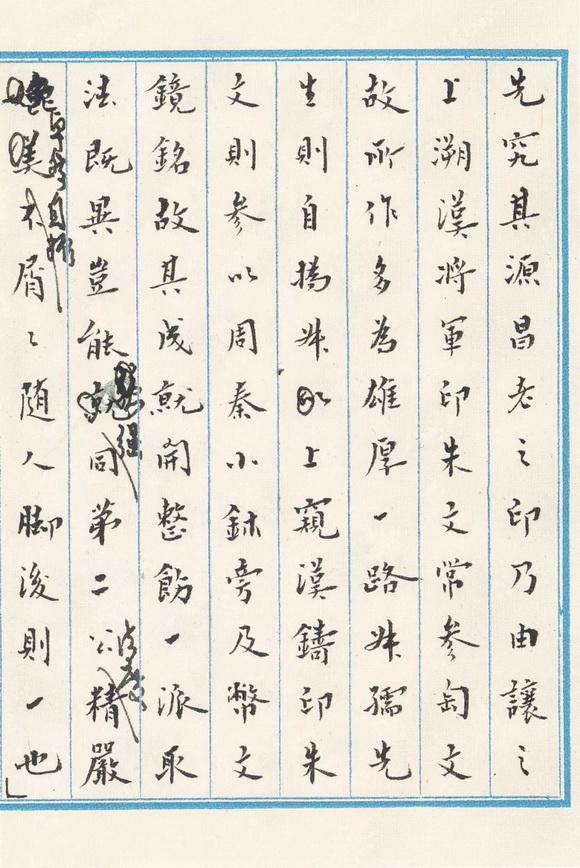 先究其源昌老之印乃由讓之
上溯漢將軍印朱文常參匋文
故所作多為雄厚一路叔孺先
生則自撝叔以上窺漢鑄印朱
文則參以周秦小鉥旁及幣文
鏡銘故其成就開整飭一派取
法既異豈能強同第二公精嚴
美不屑〻隨人腳後則一也